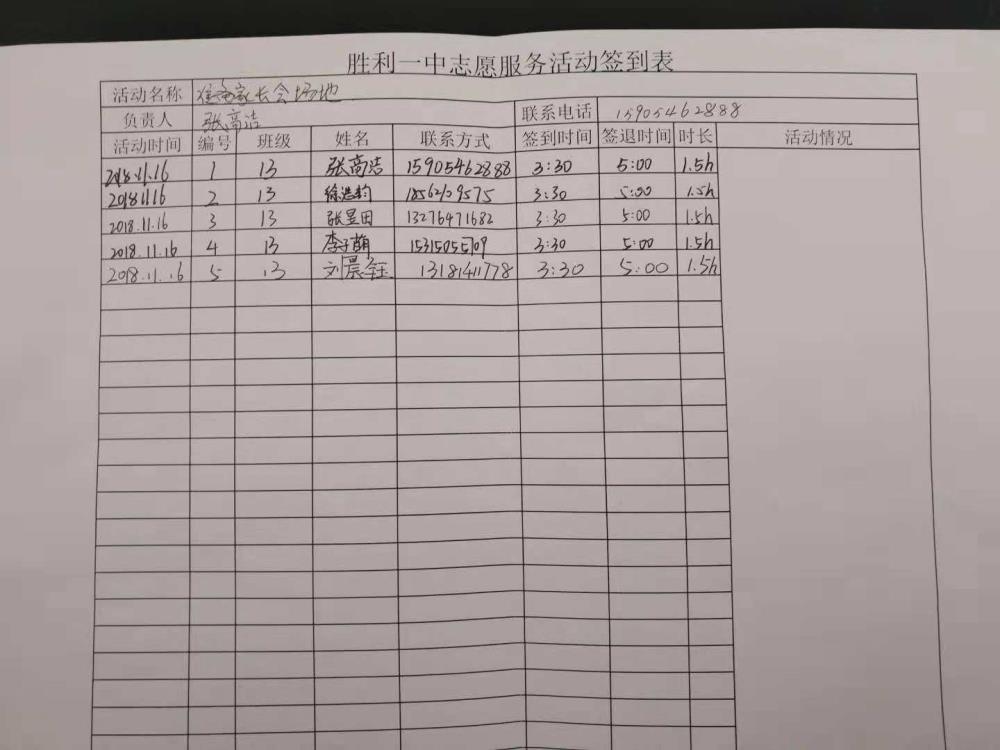 胜利一中志愿服务活动签到表
活动名称 准备家长会场地
负责人 张高洁 联系电话 15905462888
活动时间 编号 班级 姓名 联系方式 签到时间 签退时间 时长 活动情况
2018.11.16 1 13 张高洁 15905462888 3:30 5:00 1.5h
2018.11.16 2 13 3:30 5:00 1.5h
2018.11.16 3 13 张昱田 13276471682 3:30 5:00 1.5h
2018.11.16 4 13 李子萌 15315055709 3:30 5:00 1.5h
2018.11.16 5 13 刘晨钰 13181411778 3:30 5:00 1.5h